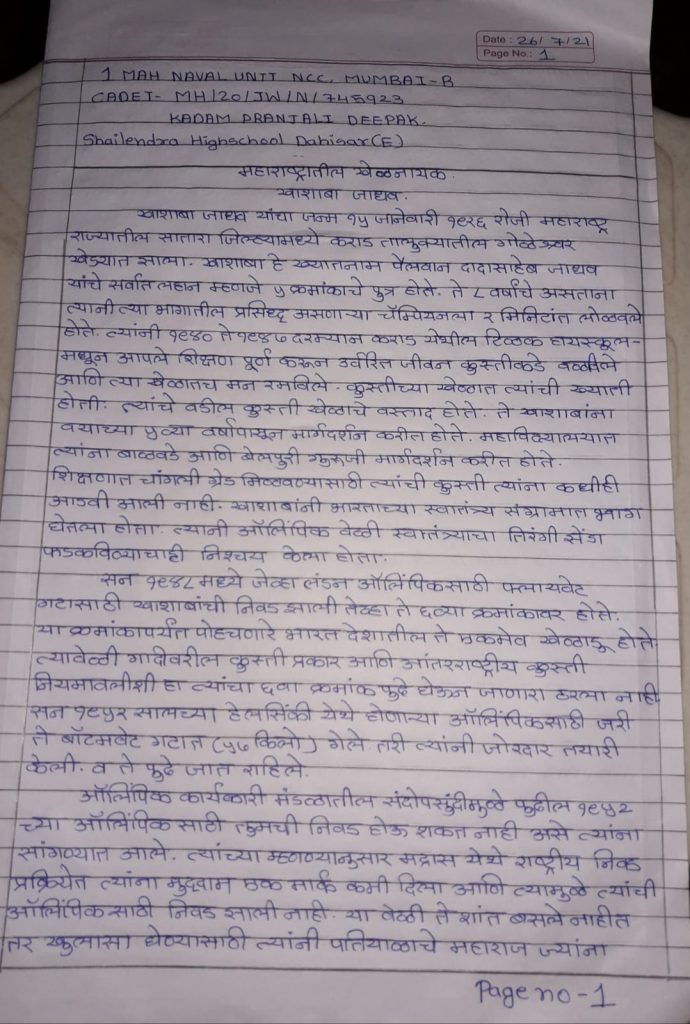 Date : 26/7/21
Page No : 1
1 MAH NAVAL UNIT NCC, MUMBAI-B
CADET- MH/20/JW/N/745923
KADAM PRANJALI DEEPAK.
Shailendra Highschool Dahisar(E)
महाराष्ट्रातील खेळनायक.
खाशाबा जाधव.
खाशाबा जाधव यांचा जन्म १५ जानेवारी १९२६ रोजी महाराष्ट्र
राज्यातील सातारा जिल्ह्यामध्ये कराड तालुक्यातील गोळेश्वर
खेड्यात झाला. खाशाबा हे ख्यातनाम पैलवान दादासाहेब जाधव
यांचे सर्वात लहान म्हणजे ५ क्रमांकाचे पुत्र होते. ते ८ वर्षाचे असताना
त्यानी त्या भागातील प्रसिध्द असणाऱ्या चॅम्पियनला २ मिनिटांत लोळवले
होते. त्यांनी १९४० ते १९४७ दरम्यान कराड येथील टिळक हायस्कूल-
मधून आपले शिक्षण पूर्ण करून उर्वरित जीवन कुस्तीकडे वळविले
आणि त्या खेळातच मन रमविले. कुस्तीच्या खेळात त्यांची ख्याती
होती. त्यांचे वडील कुस्ती खेळाचे वस्ताद होते. ते खाशाबांना
वयाच्या ५व्या वर्षापासून मार्गदर्शन करीत होते. महाविद्यालयात
त्यांना बाळवडे आणि बेलपुरी गुरूजी मार्गदर्शन करीत होते.
शिक्षणात चांगली ग्रेड मिळवण्यासाठी त्यांची कुस्ती त्यांना कधीही
आडवी आली नाही. खाशाबांनी भारताच्या स्वातंत्र्य संग्रामात भाग
घेतला होता. त्यानी ऑलिंपिक वेळी स्वातंत्र्याचा तिरंगी झेंडा
फडकविण्याचाही निश्चय केला होता.
सन १९४८ मध्ये जेव्हा लंडन ऑलिंपिकसाठी फ्लायवेट
गटासाठी खाशाबांची निवड झाली तेव्हा ते ६व्या क्रमांकावर होते.
या क्रमांकापर्यंत पोहचणारे भारत देशातील ते एकमेव खेळाडू होते
त्यावेळी गादीवरील कुस्ती प्रकार आणि आंतरराष्ट्रीय कुस्ती
नियमावलीशी हा त्यांचा ६वा क्रमांक पुढे घेऊन जाणारा ठरला नाही
सन १९५२ सालच्या हेलसिंकी येथे होणाऱ्या ऑलिंपिकसाठी जरी
ते बॉटमवेट गटात (५७ किलो) गेले तरी त्यांनी जोरदार तयारी
केली. व ते पुढे जात राहिले.
ऑलिंपिक कार्यकारी मंडळातील संदोपसुंदीमुळे पुढील १९५२
च्या ऑलिंपिकसाठी तुमची निवड होऊ शकत नाही असे त्यांना
सांगण्यात आले. त्यांच्या म्हणण्यानुसार मद्रास येथे राष्ट्रीय निवड
प्रक्रियेत त्यांना मुद्दाम एक मार्क कमी दिला आणि त्यामुळे त्यांची
ऑलिंपिकसाठी निवड झाली नाही. या वेळी ते शांत बसले नाहीत
तर खुलासा घेण्यासाठी त्यांनी पतियाळाचे महाराज ज्यांना
Page no - 1